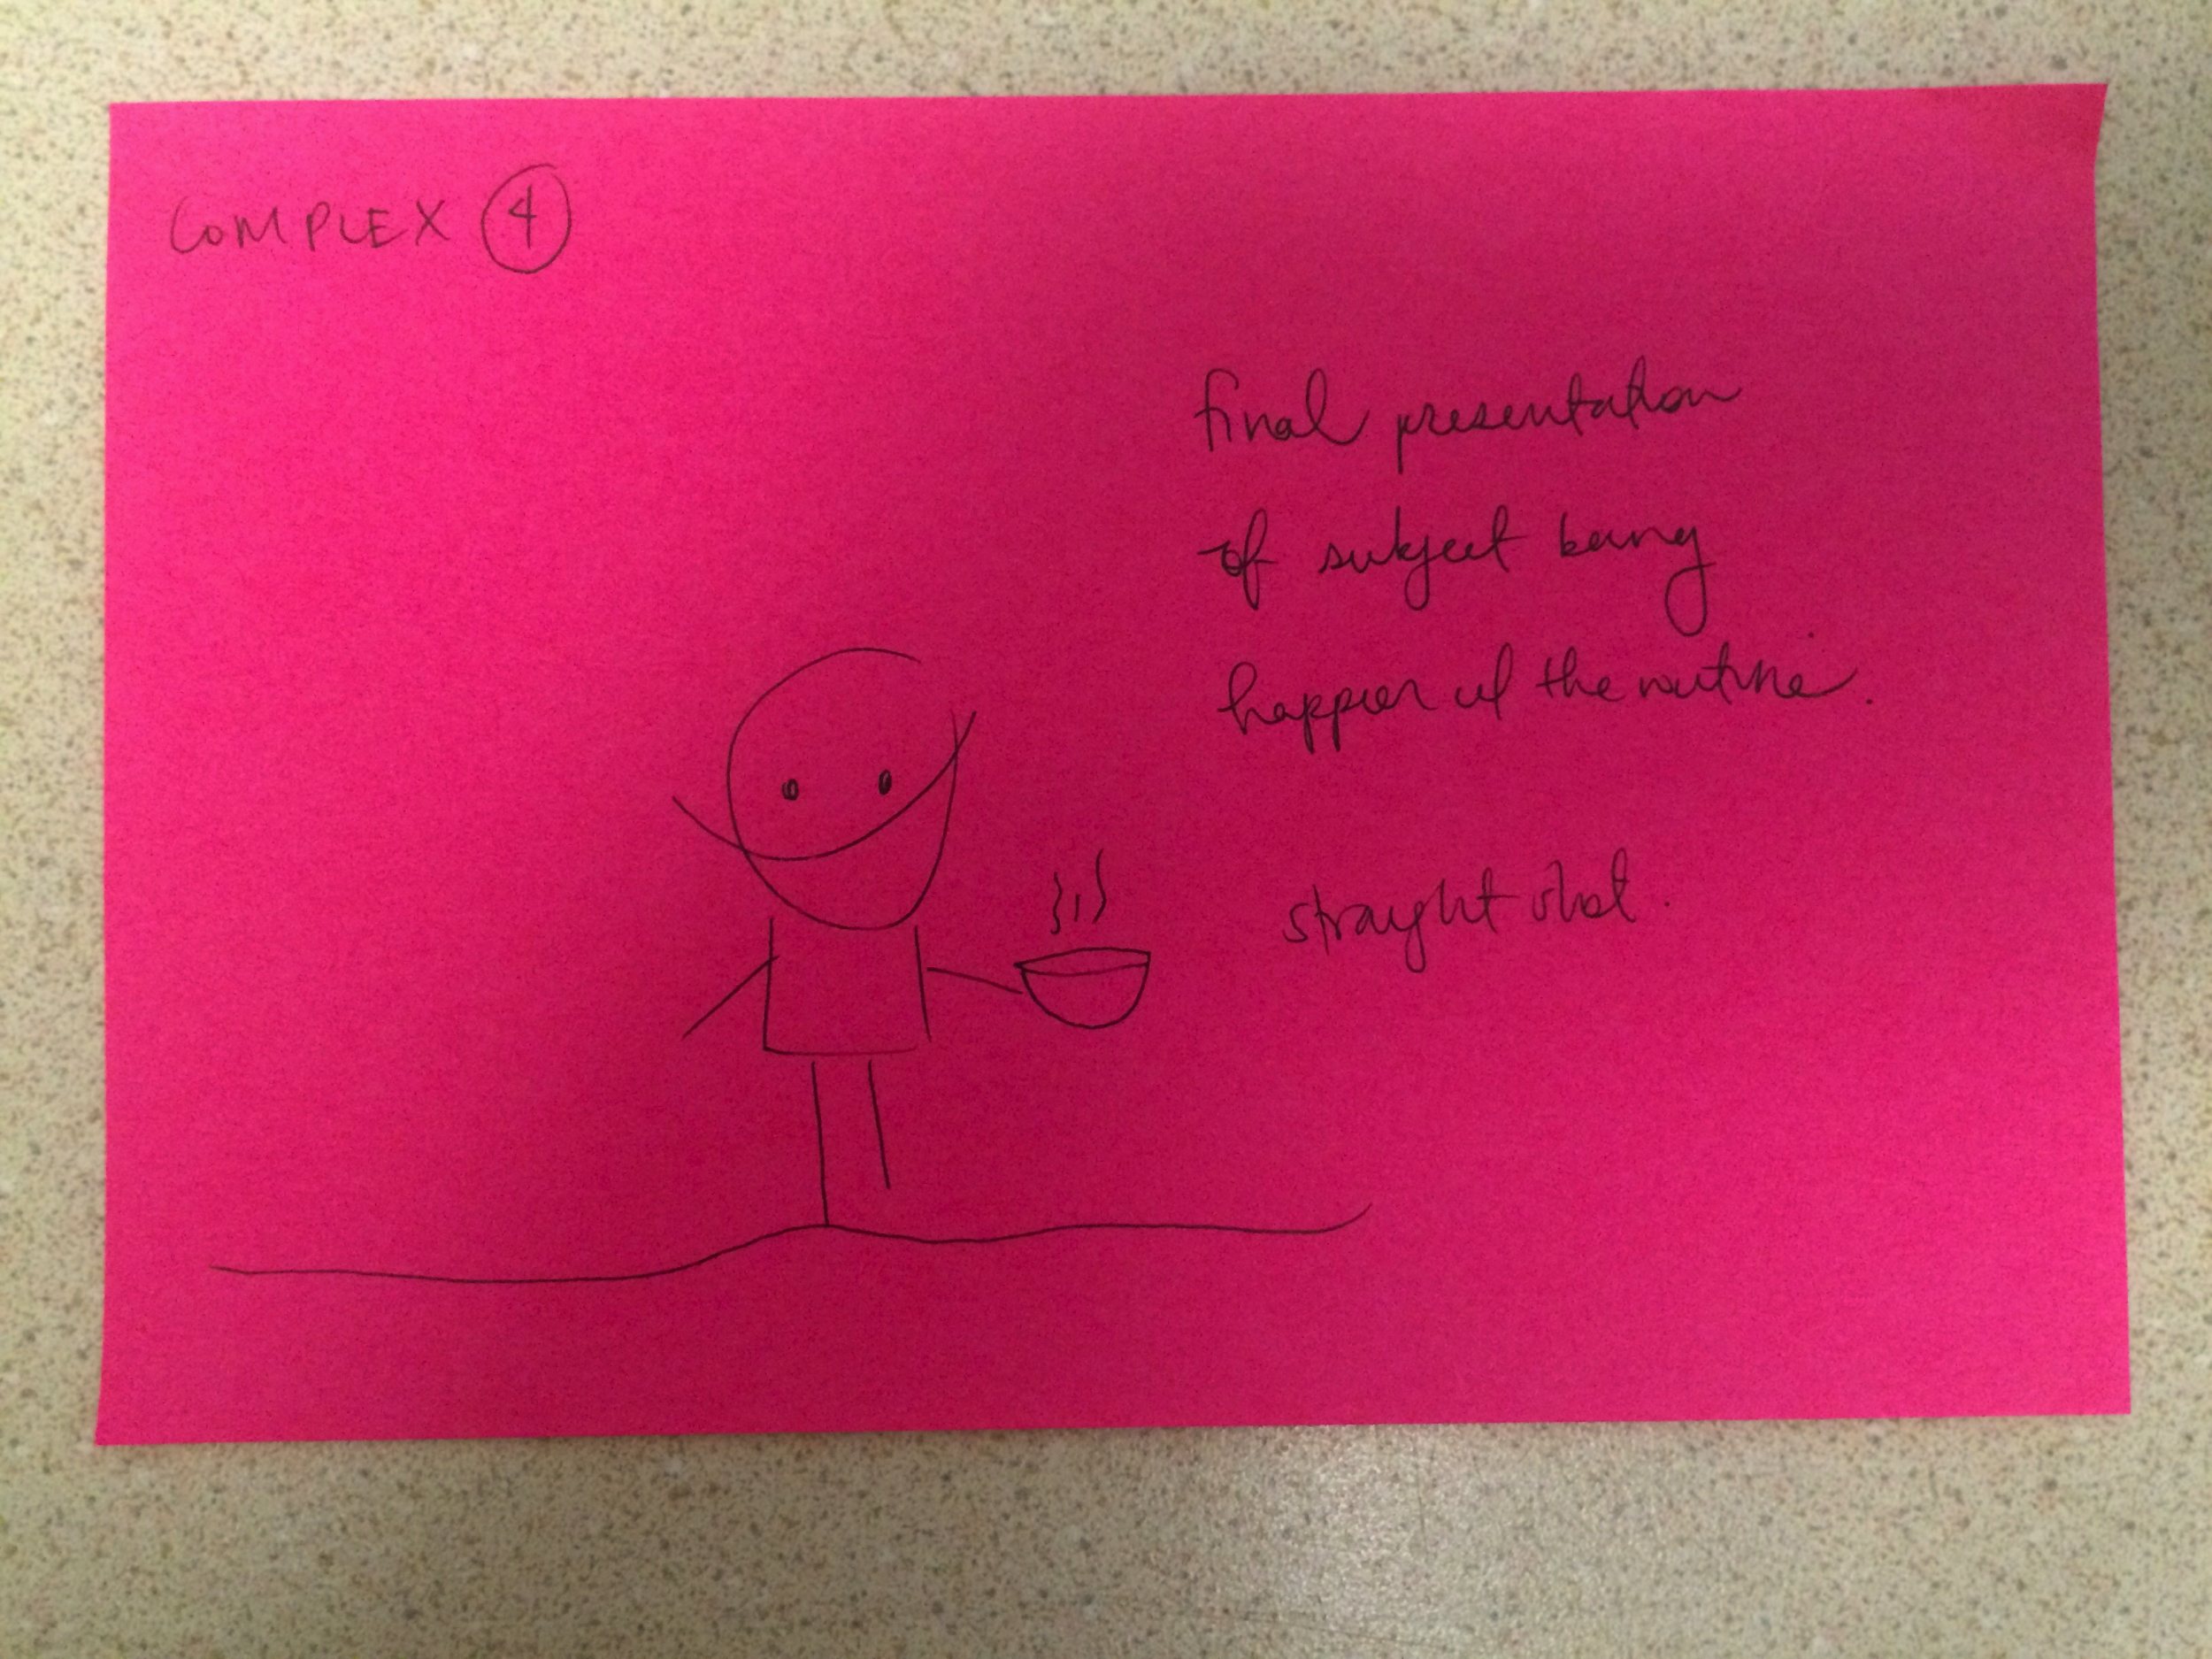 COMPLEX 4
final presentation
of subject being
happier w/ the routine.
straight shot.